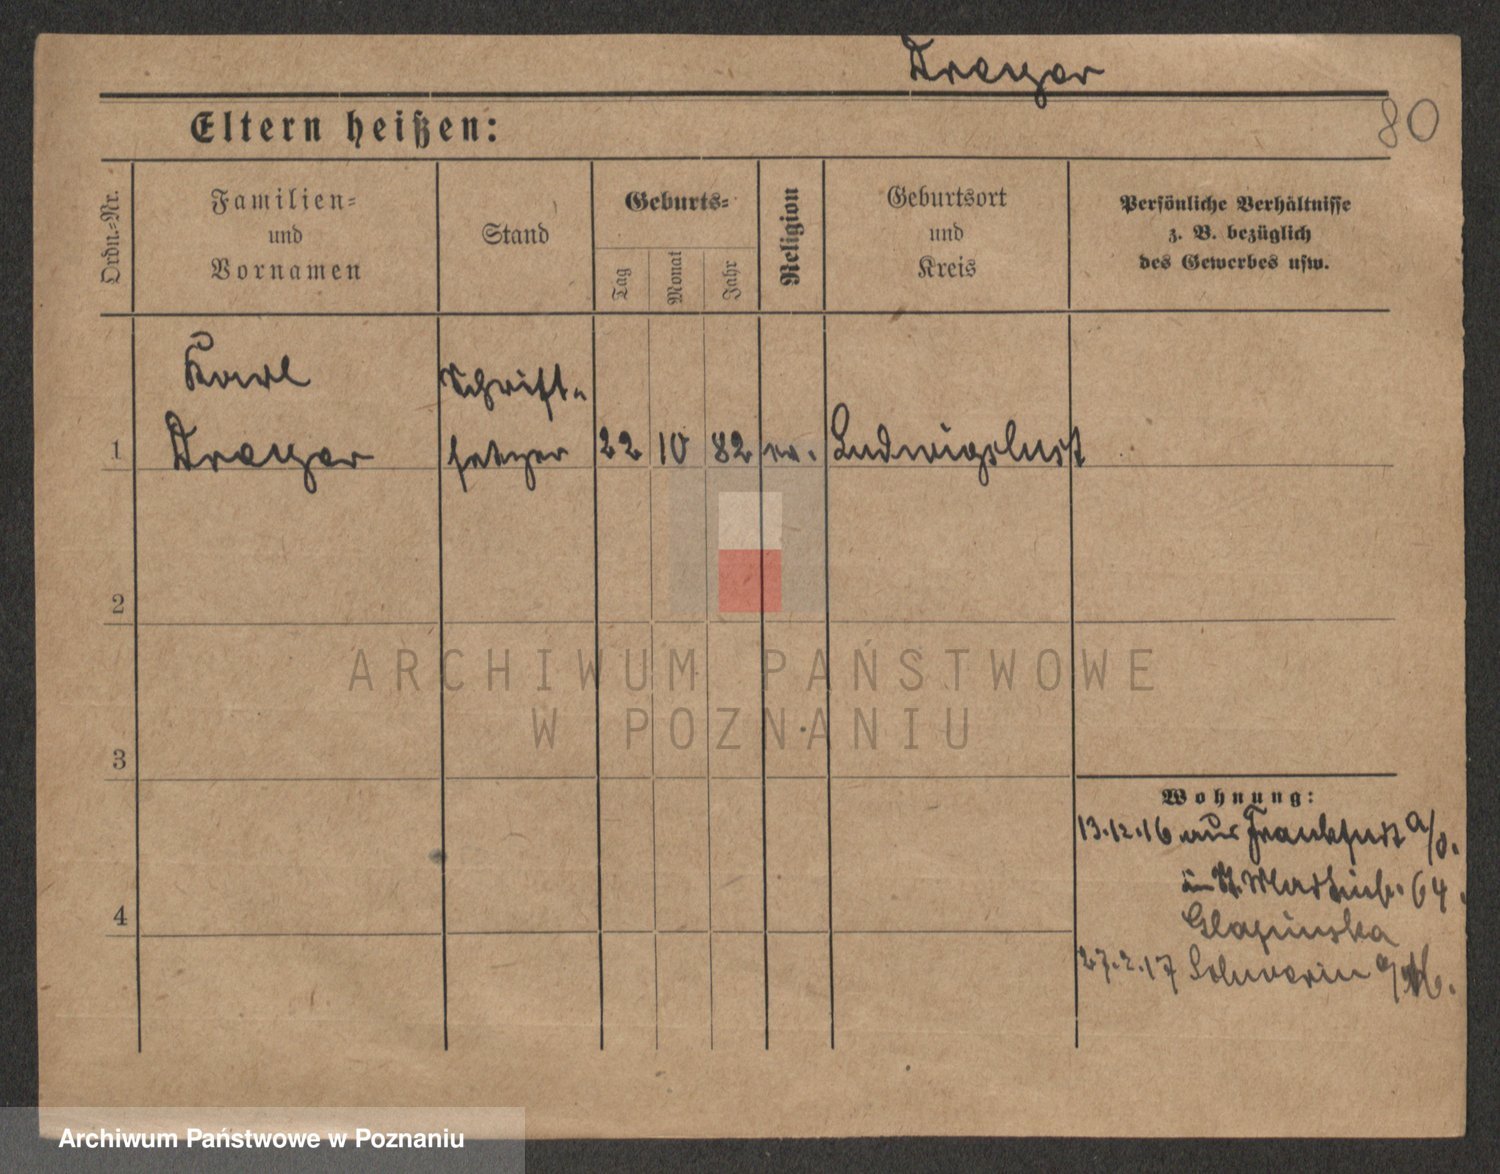 Dreyer
80
Eltern heißen:
Ordn.-Nr.
Familien-
und
Vornamen
Stand
Geburts-
Tag
Monat
Jahr
Religion
Geburtsort
und
Kreis
Persönliche Verhältnisse
z. B. bezüglich
des Gewerbes usw.
Karl
Dreyer
Schrift-
setzer
1
22
10
82
ev.
Ludwigslust
2
3
4
Wohnung:
13.12.16 aus Frankfurt a/O.
in St. Martinstr. 64.
Glapinska
27.2.17 Schwerin a/
ARCHIWUM PAŃSTWOWE
W POZNANIU
Archiwum Państwowe w Poznaniu